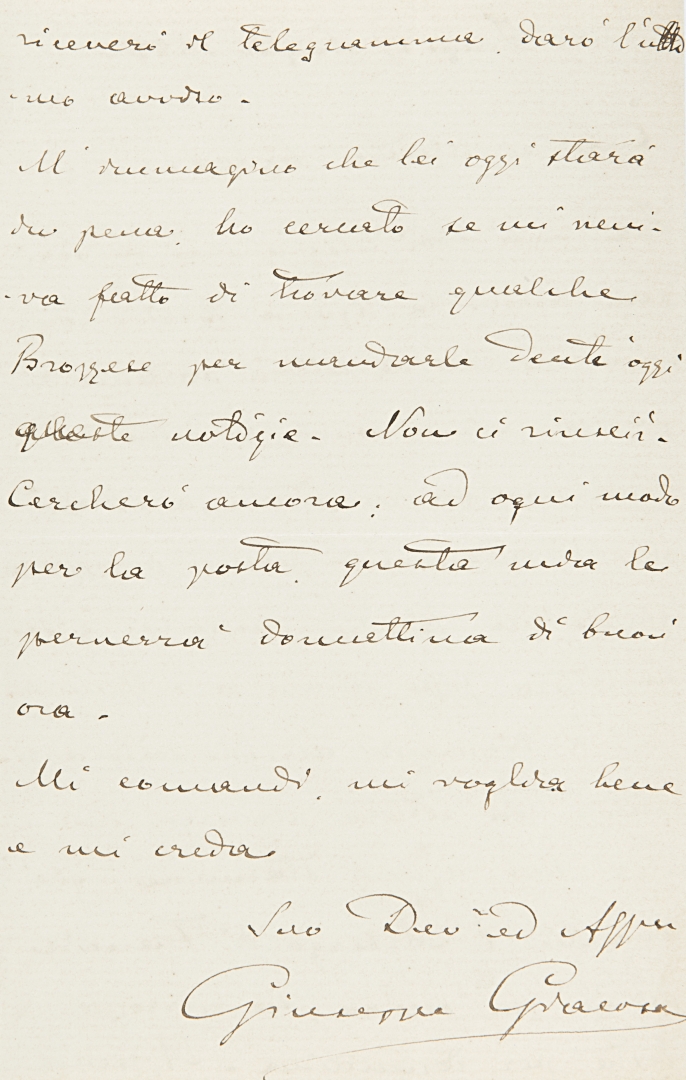 riceverò il telegramma, darò l'ulti
-mo avviso -
M'immagino che lei oggi starà
in pena, ho cercato se mi veni-
-va fatto di trovare qualche
Brozzese per mandarle dentr'oggi
queste notizie - Non ci riuscii -
Cercherò ancora; ad ogni modo
per la posta, questa mia le
perverrà domattina di buon
ora -
Mi comandi, mi voglia bene
e mi creda
Suo Dev.mo ed Aff
Giuseppe Giacosa